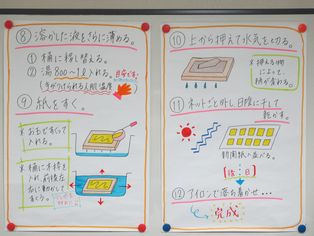 ⑧ 溶かした液をさらに薄める。
① 桶に移し替える。
② 湯800〜1ℓ入れる。
目安です
(手がつけられる人肌温度)
⑨ 紙をすく。
※ おたまですくって
入れる。
※ 桶に木枠を
入れ、前後左
右に動かして
すくう。
⑩ 上から押えて水気を切る。
※ 押える物
によって、
柄が変わる。
⑪ ネットごと外し日陰に干して
乾かす。
新聞紙へ並べる。
⑫ アイロンで落ち着かせ…
完成